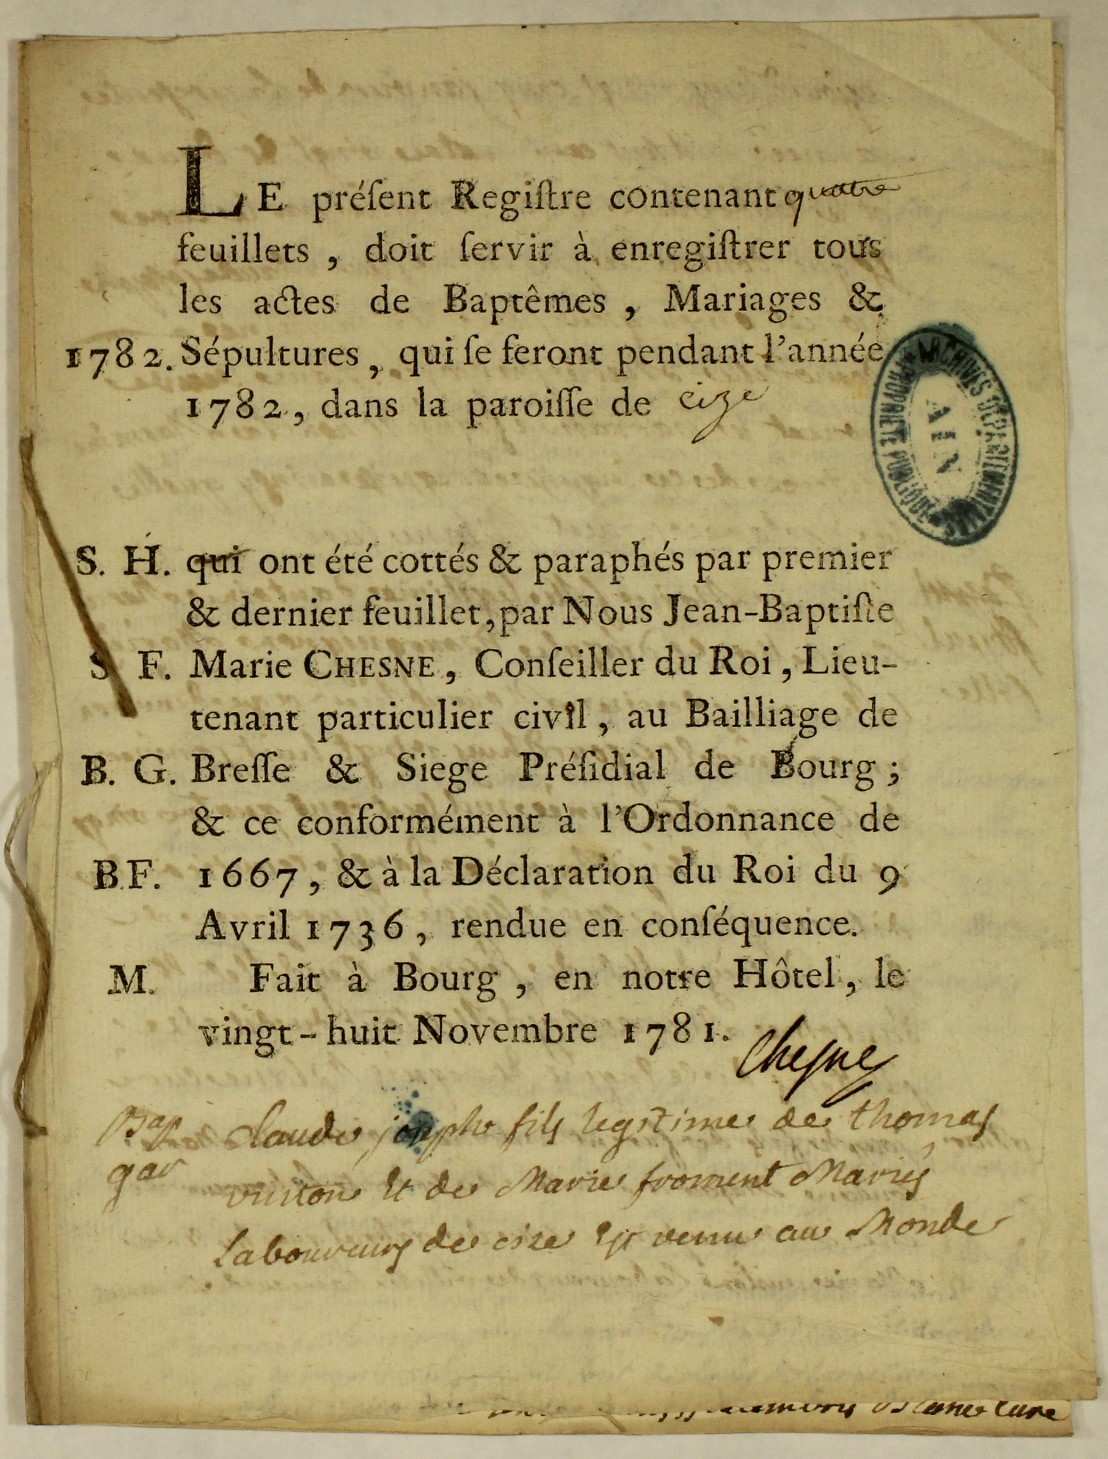 LE préſent Regiſtre contenant quatre
feuillets , doit ſervir à enregiſtrer tous
les actes de Baptêmes , Mariages &
1782. Sépultures , qui ſe feront pendant l'année
1782 , dans la paroiſſe de cize
ARCHIVES DEPARTEMENTALES
PROPRIETE PUBLIQUE
AIN
S. H. qui ont été cottés & paraphés par premier
& dernier feuillet, par Nous Jean-Baptiſte
S. F. Marie CHESNE , Conſeiller du Roi , Lieu-
tenant particulier civil , au Bailliage de
B. G. Breſſe & Siege Préſidial de Bourg ;
& ce conformément à l'Ordonnance de
B. F. 1667 , & à la Déclaration du Roi du 9
Avril 1736 , rendue en conſéquence.
M. Fait à Bourg , en notre Hôtel , le
vingt-huit Novembre 1781. Chesne
Bap claude joseph fils legitime de thomas
gar et de Marie froment Mariés
Laboureurs de cize Est venu au Monde
cure